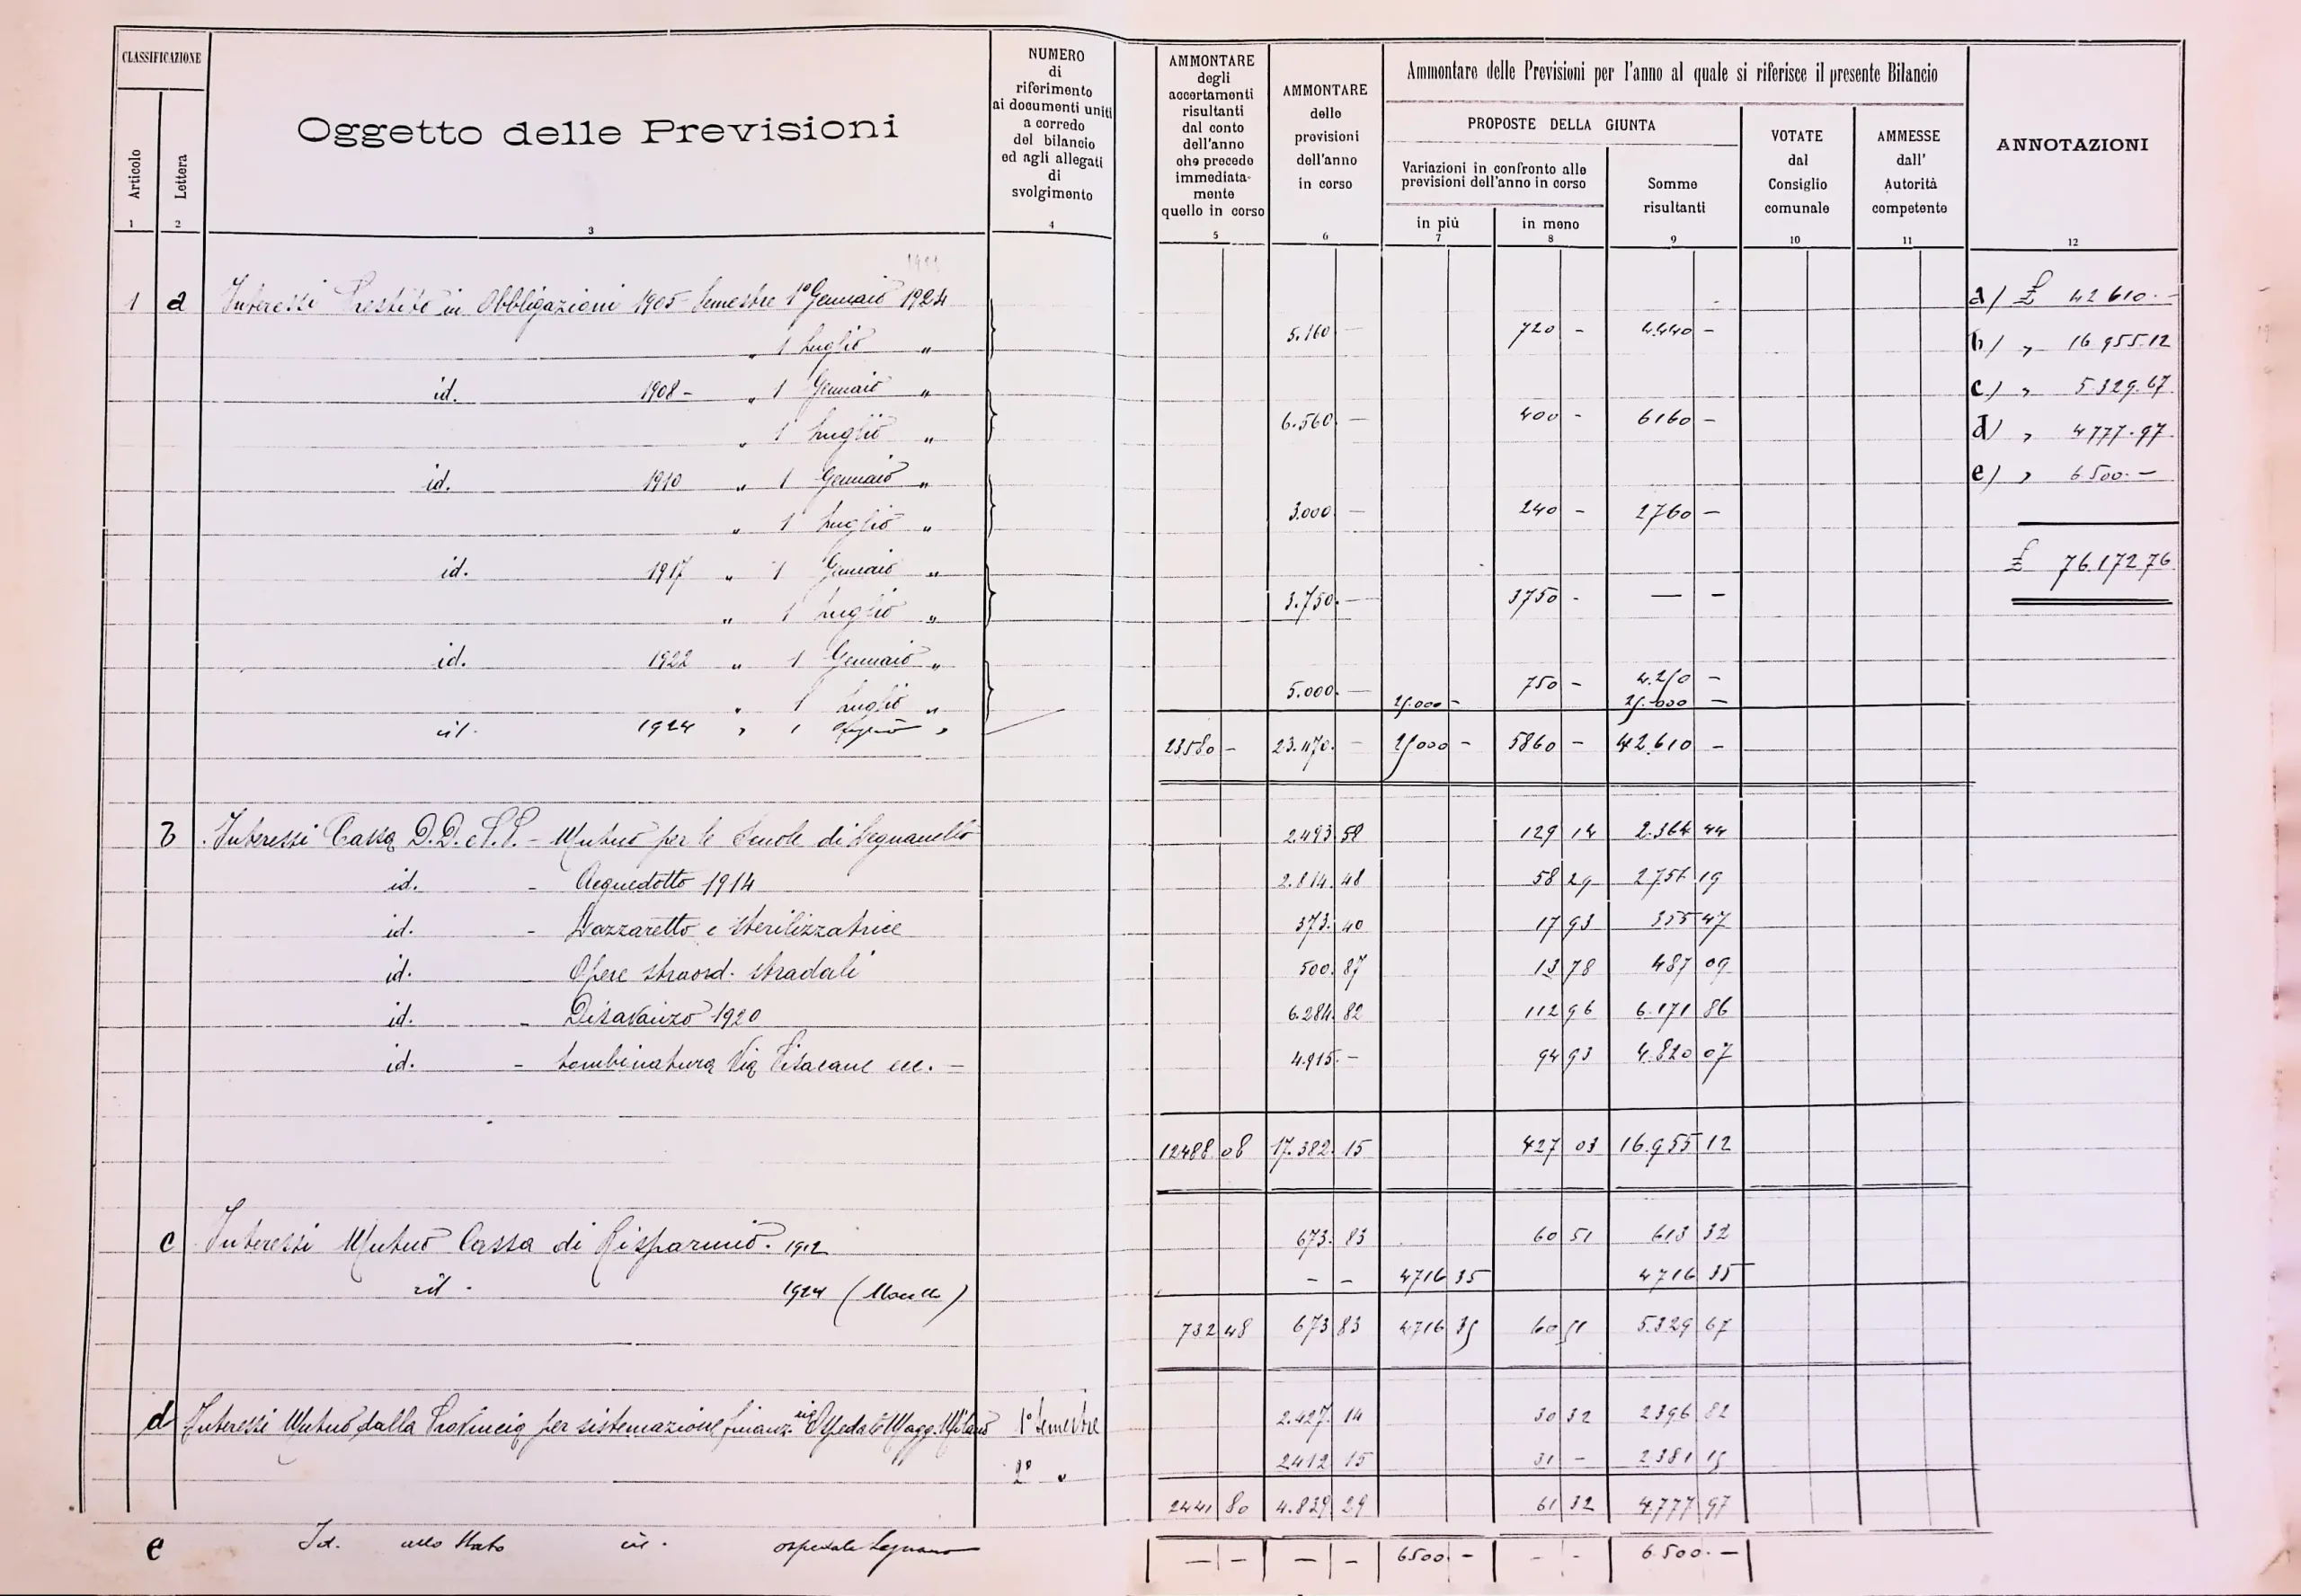 CLASSIFICAZIONE
Articolo
Lettera
Oggetto delle Previsioni
NUMERO
di
riferimento
ai documenti uniti
a corredo
del bilancio
ed agli allegati
di
svolgimento
AMMONTARE
degli
accertamenti
risultanti
dal conto
dell'anno
che precede
immediata-
mente
quello in corso
AMMONTARE
delle
previsioni
dell'anno
in corso
Ammontare delle Previsioni per l'anno al quale si riferisce il presente Bilancio
PROPOSTE DELLA GIUNTA
Variazioni in confronto alle
previsioni dell'anno in corso
in più
in meno
Somme
risultanti
VOTATE
dal
Consiglio
comunale
AMMESSE
dall'
Autorità
competente
ANNOTAZIONI
1 2 3 4 5 6 7 8 9 10 11 12
1 a Interessi Prestito in Obbligazioni 1905 Semestre 1° Gennaio 1924 a) £ 42610.—
„ 1 Luglio „ 5.160 — 720 - 4.440 - b) „ 16955.12
id. 1908 - „ 1 Gennaio „ c) „ 5.329.67
„ 1 Luglio „ 6.560. — 400 - 6160 - d) „ 4777.97
id. 1910 „ 1 Gennaio „ e) „ 6.500.—
„ 1 Luglio „ 3.000 — 240 - 2760 -
id. 1917 „ 1 Gennaio „ £ 76.172.76
„ 1 Luglio „ 3.750. — 3750 - — -
id. 1922 „ 1 Gennaio „
„ 1 Luglio „ 5.000. — 750 - 4.250 -
id. 1924 „ 1 „ 25.000 - 25.000 —
23580 - 23.470. - 25000 - 5860 - 42.610 -
b Interessi Cassa D.D. e P.P. - Mutuo per le Scuole di Legnanello 2.493 58 129 14 2.364 44
id. - Acquedotto 1914 2.814. 48 58 29 2756 19
id. - Lazzaretto e sterilizzatrice 373. 40 17 93 355 47
id. - Opere straord. stradali 500. 87 13 78 487 09
id. - Disavanzo 1920 6.284. 82 112 96 6.171 86
id. - tombinatura Via Pisacane ecc. - 4.915. - 94 93 4.820 07
12488 08 17.382. 15 427 03 16.955 12
c Interessi Mutuo Cassa di Risparmio. 1912 673. 83 60 51 613 32
id. 1924 (Macello) - - 4716 35 4716 35
732 48 673 83 4716 35 60 51 5.329 67
d Interessi Mutuo dalla Provincia per sistemazione finanz.ria Ospedale Magg. Milano 1° Semestre 2.427. 14 30 32 2396 82
2° „ 2412 15 31 - 2381 15
2441 80 4.839 29 61 32 4.777 97
e Id. allo Stato id. ospedale Legnano — - — - 6500. - - - 6.500. —